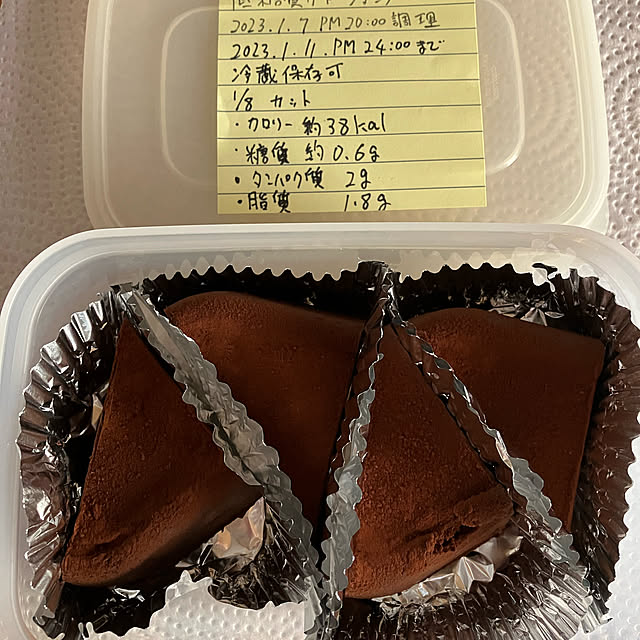 低糖質ガトーショコラ
2023.1.7 PM 20:00 調理
2023.1.11. PM 24:00 まで
冷蔵保存可
1/8 カット
・カロリー 約38kcal
・糖質 約0.6g
・タンパク質 2g
・脂質 1.8g